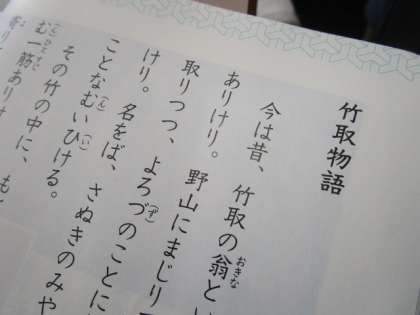 竹取物語
今は昔、竹取の翁(おきな)とい
ありけり。野山にまじりて
取りつつ、よろづ(ず)のことに
けり。名をば、さぬきのみや
ことなむ(ん)いひ(い)ける。
その竹の中に、も
む一筋(ひとすぢ)ありけ